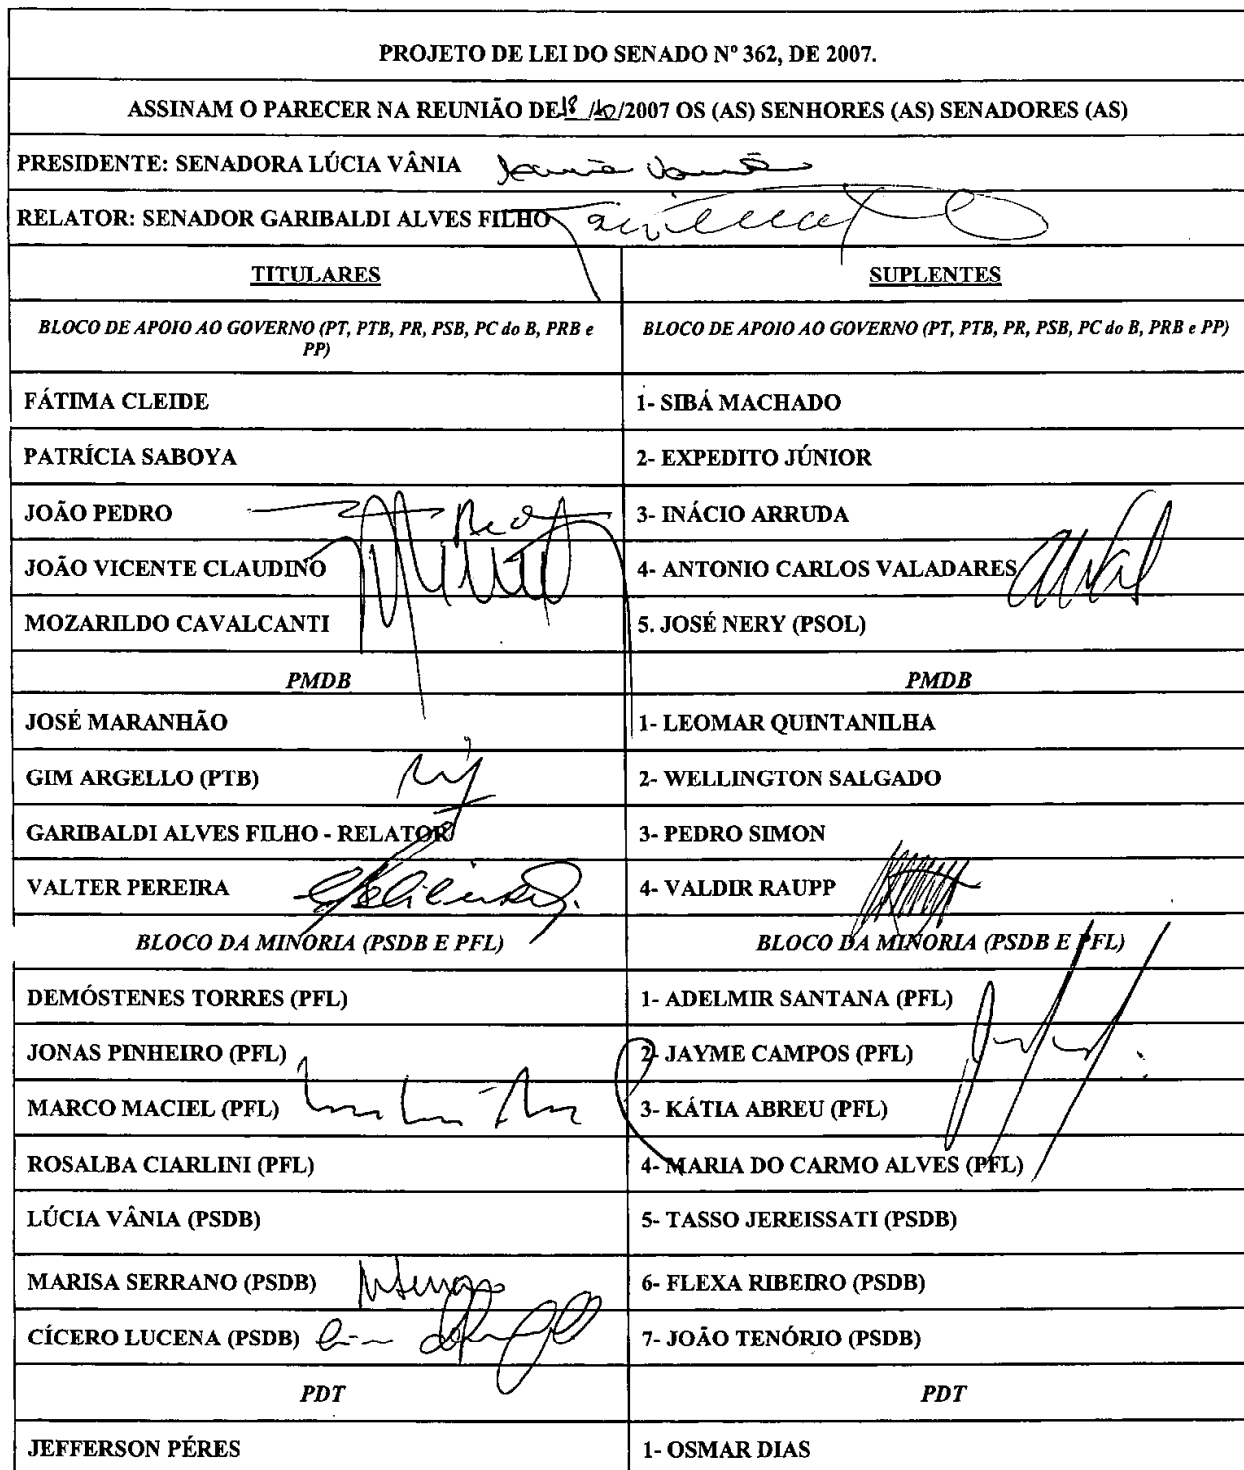 PROJETO DE LEI DO SENADO Nº 362, DE 2007.
ASSINAM O PARECER NA REUNIÃO DE 18 /10/2007 OS (AS) SENHORES (AS) SENADORES (AS)
PRESIDENTE: SENADORA LÚCIA VÂNIA
RELATOR: SENADOR GARIBALDI ALVES FILHO
TITULARES
SUPLENTES
BLOCO DE APOIO AO GOVERNO (PT, PTB, PR, PSB, PC do B, PRB e
PP)
BLOCO DE APOIO AO GOVERNO (PT, PTB, PR, PSB, PC do B, PRB e PP)
FÁTIMA CLEIDE
1- SIBÁ MACHADO
PATRÍCIA SABOYA
2- EXPEDITO JÚNIOR
JOÃO PEDRO
3- INÁCIO ARRUDA
JOÃO VICENTE CLAUDINO
4- ANTONIO CARLOS VALADARES
MOZARILDO CAVALCANTI
5. JOSÉ NERY (PSOL)
PMDB
PMDB
JOSÉ MARANHÃO
1- LEOMAR QUINTANILHA
GIM ARGELLO (PTB)
2- WELLINGTON SALGADO
GARIBALDI ALVES FILHO - RELATOR
3- PEDRO SIMON
VALTER PEREIRA
4- VALDIR RAUPP
BLOCO DA MINORIA (PSDB E PFL)
BLOCO DA MINORIA (PSDB E PFL)
DEMÓSTENES TORRES (PFL)
1- ADELMIR SANTANA (PFL)
JONAS PINHEIRO (PFL)
2- JAYME CAMPOS (PFL)
MARCO MACIEL (PFL)
3- KÁTIA ABREU (PFL)
ROSALBA CIARLINI (PFL)
4- MARIA DO CARMO ALVES (PFL)
LÚCIA VÂNIA (PSDB)
5- TASSO JEREISSATI (PSDB)
MARISA SERRANO (PSDB)
6- FLEXA RIBEIRO (PSDB)
CÍCERO LUCENA (PSDB)
7- JOÃO TENÓRIO (PSDB)
PDT
PDT
JEFFERSON PÉRES
1- OSMAR DIAS